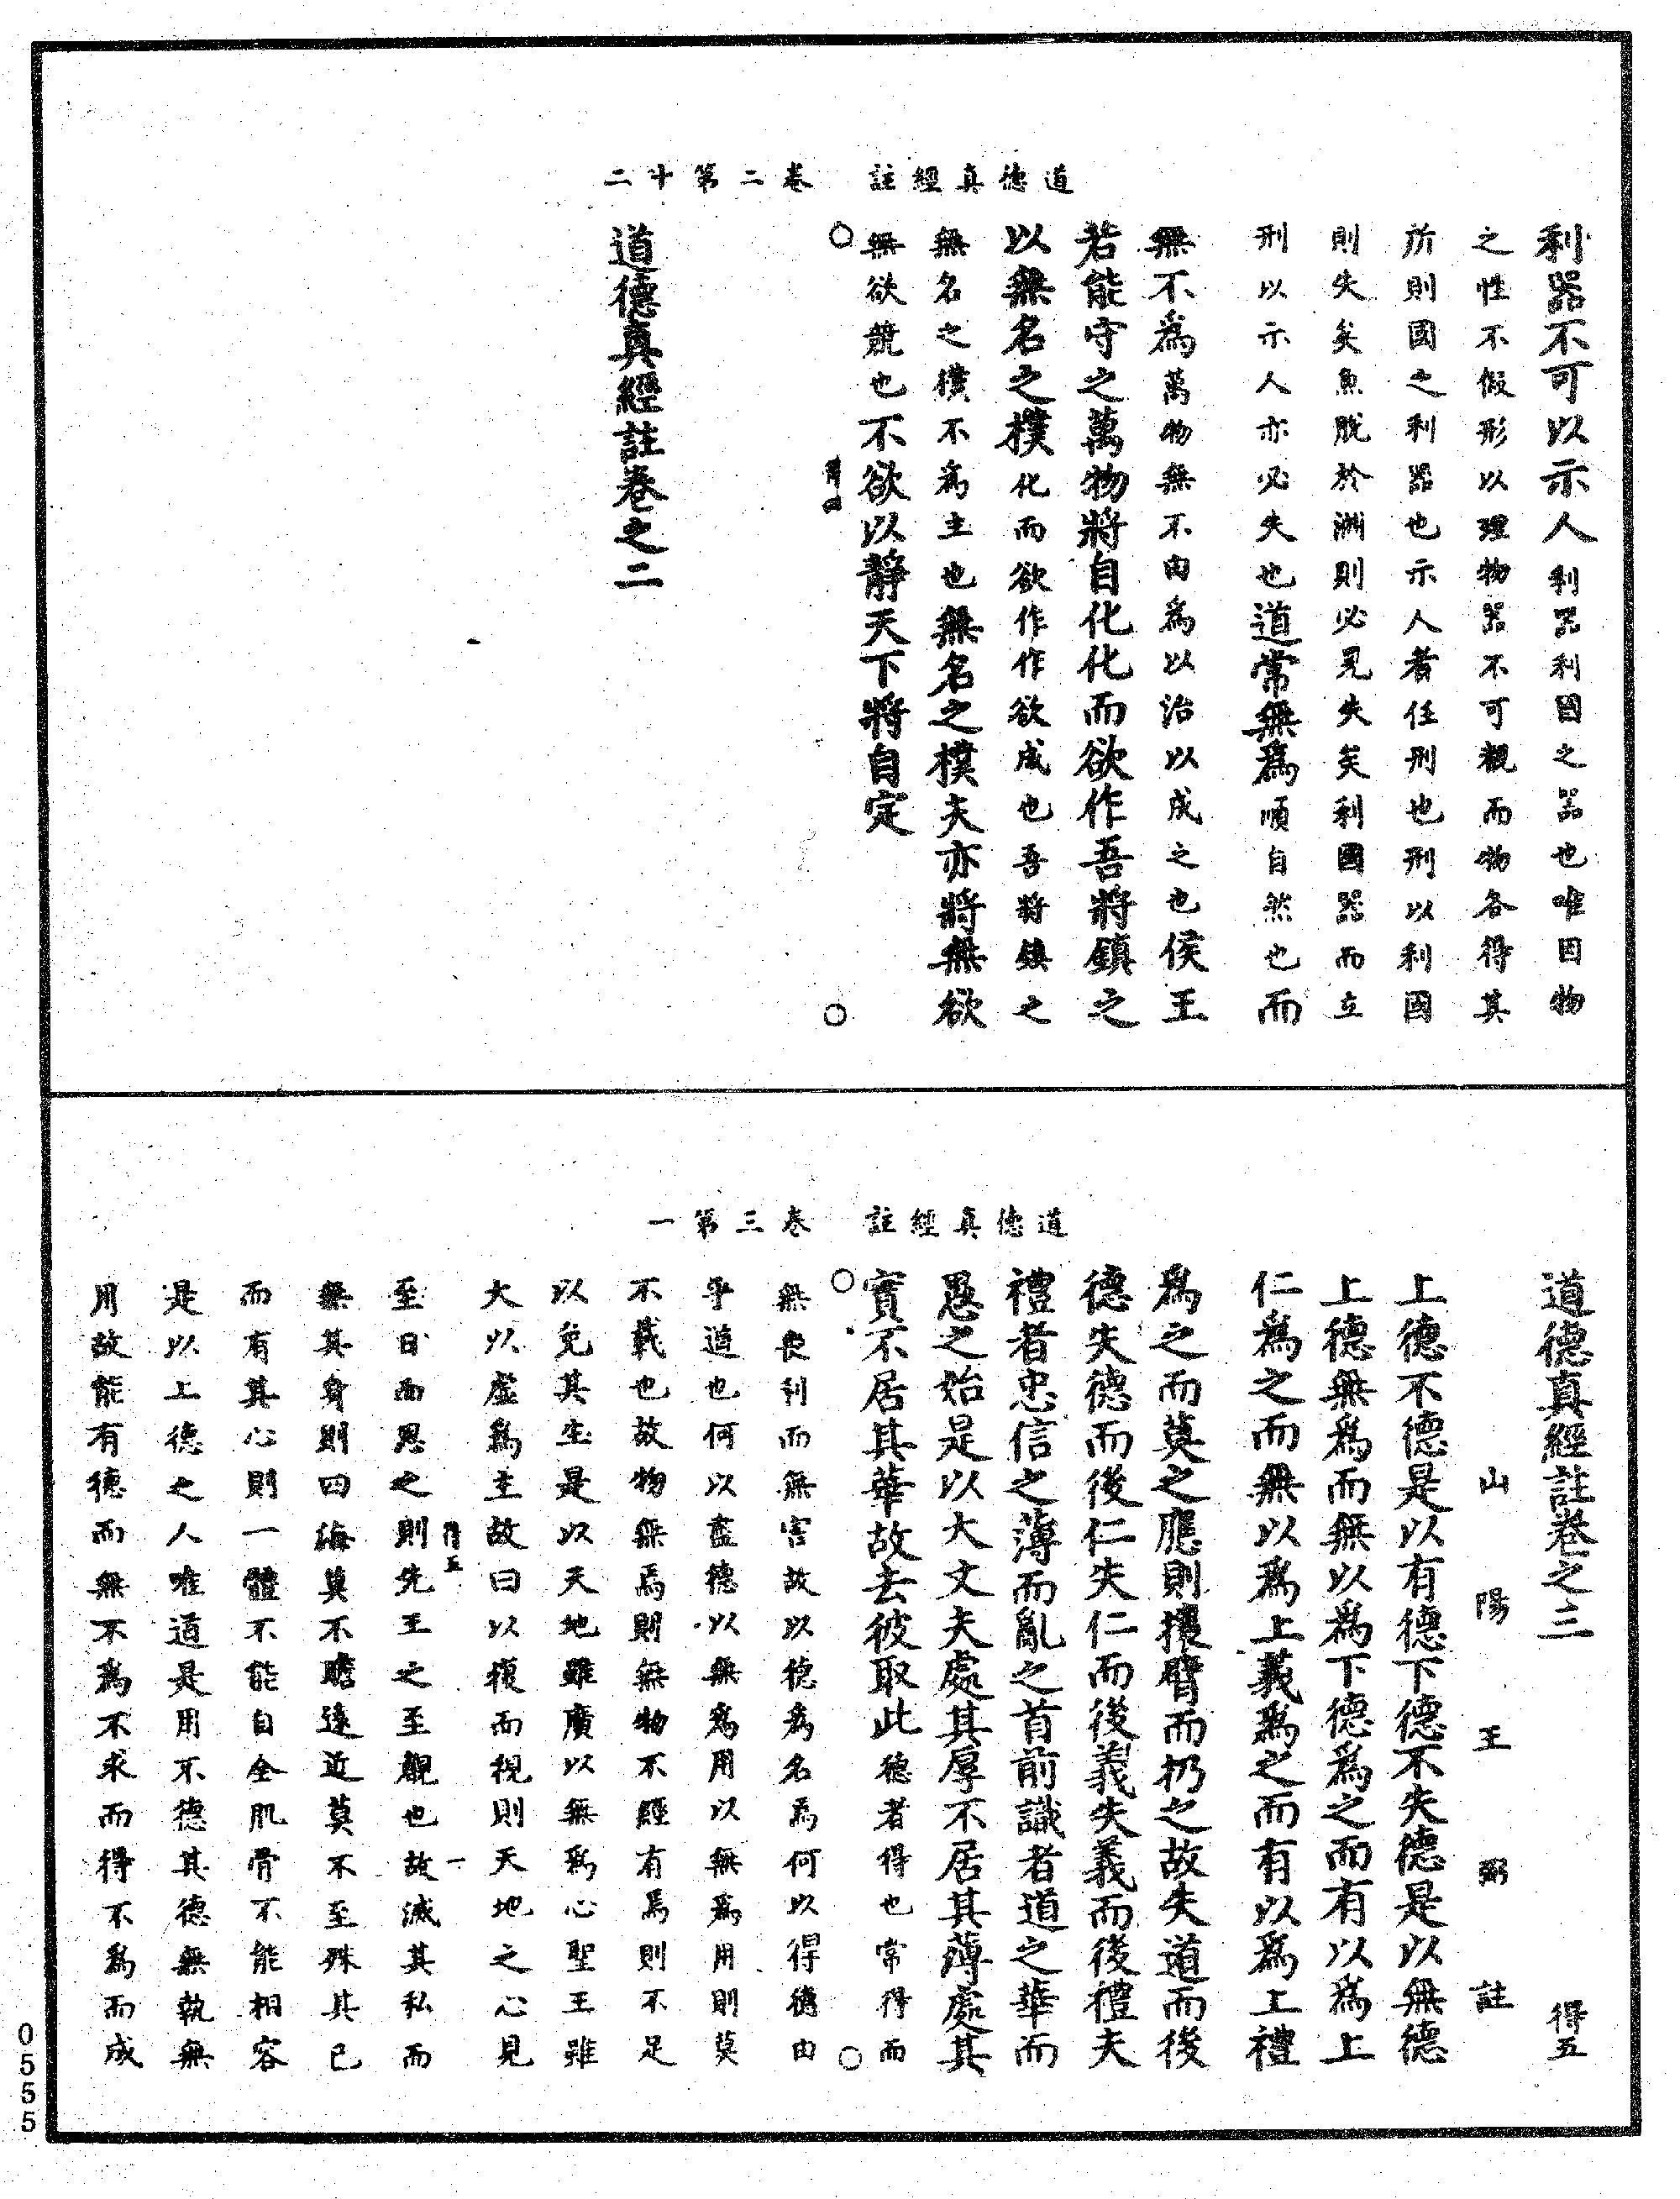 道德真經註　卷二第十二
利器不可以示人利器利國之器也唯因物
之性不假形以理物器不可覩而物各得其
所則國之利器也示人者任刑也刑以利國
則失矣魚脫於淵則必見失矣利國器而立
刑以示人亦必失也道常無爲順自然也而
無不爲萬物無不由爲以治以成之也侯王
若能守之萬物將自化化而欲作吾將鎮之
以無名之樸化而欲作作欲成也吾將鎮之
無名之樸不爲主也無名之樸夫亦將無欲
無欲競也不欲以靜天下將自定
得四
道德真經註卷之二
道德真經註　卷三第一
道德真經註卷之三　得五
山陽王弼註
上德不德是以有德下德不失德是以無德
上德無爲而無以爲下德爲之而有以爲上
仁爲之而無以爲上義爲之而有以爲上禮
爲之而莫之應則攘臂而扔之故失道而後
德失德而後仁失仁而後義失義而後禮夫
禮者忠信之薄而亂之首前識者道之華而
愚之始是以大丈夫處其厚不居其薄處其
實不居其華故去彼取此德者得也常得而
無喪利而無害故以德爲名焉何以得德由
乎道也何以盡德以無爲用以無爲用則莫
不載也故物無焉則無物不經有焉則不足
以免其生是以天地雖廣以無爲心聖王雖
大以虛爲主故曰以復而視則天地之心見
得五　一
至日而思之則先王之至覩也故滅其私而
無其身則四海莫不瞻遠近莫不至殊其己
而有其心則一體不能自全肌骨不能相容
是以上德之人唯道是用不德其德無執無
用故能有德而無不爲不求而得不爲而成
0555